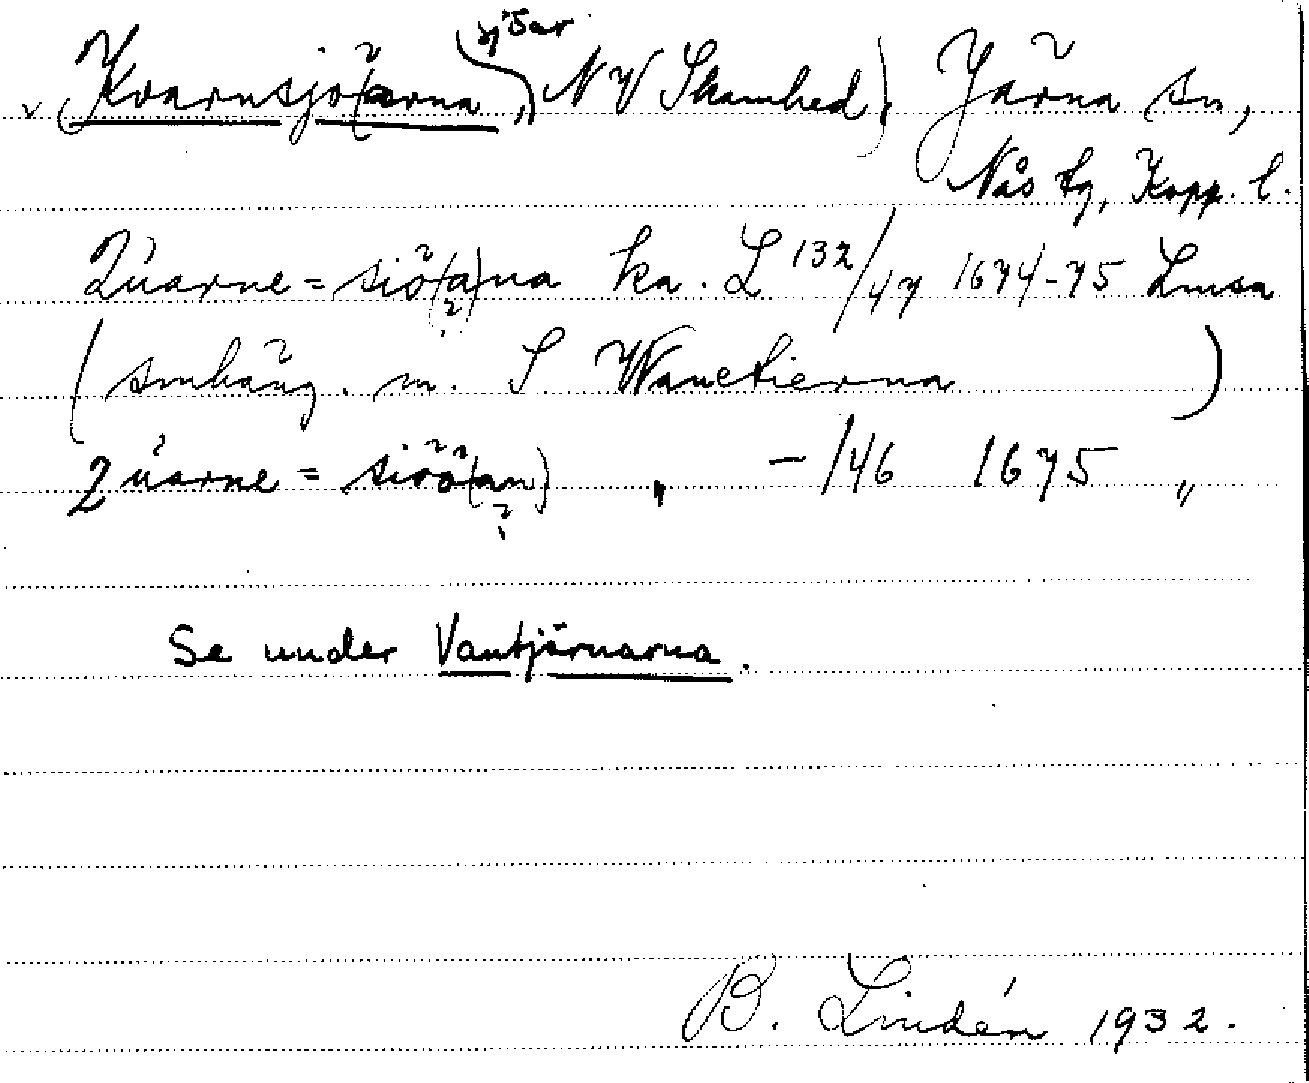 sjöar
(Kvarnsjö(arna), NV Skamhed), Järna sn,
Nås tg, Kopp. l.
Quarne=siö(a)na ka. L 132/47 1674-75 Lmsa
?
(smhäng. m. S Wanetierna )
Quarne=siöö(an) , -/46 1675 "
?
Se under Vantjärnarna.
B. Lindén 1932.